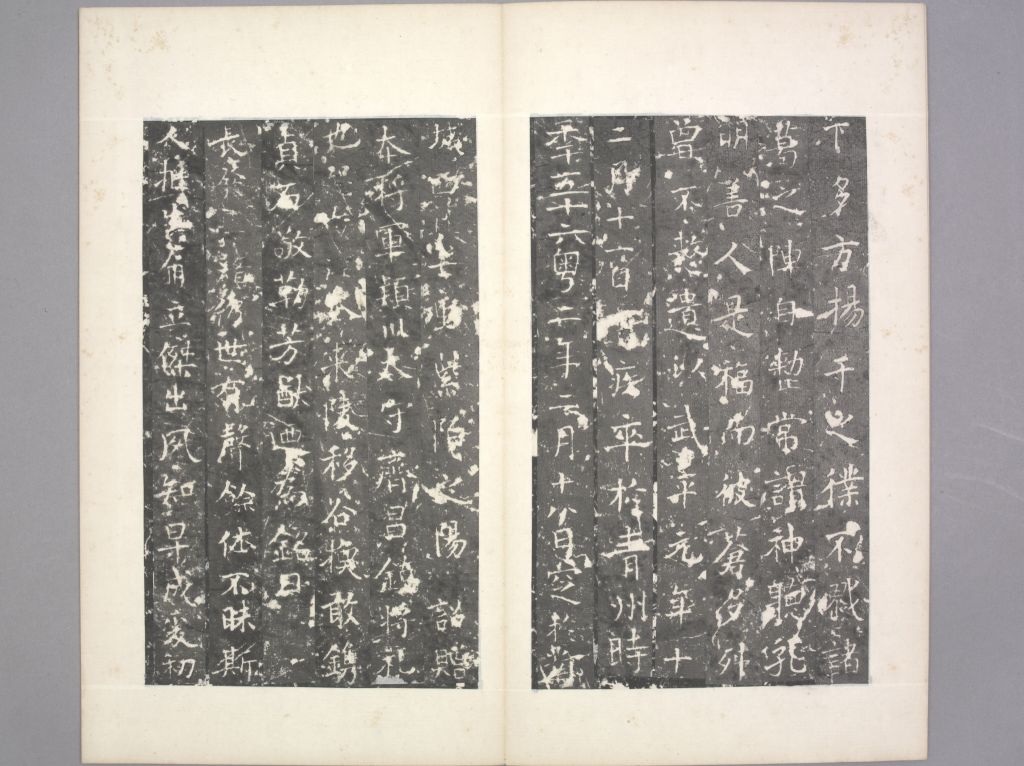 下多方揚千之樸不戢諸
葛之陣自整常謂神聽孔
明善人是福而彼蒼多舛
曾不憗遺以武平元年十
二月十一日遘疾卒於青州時
年五十六粵二年二月十八日窆於鄴
城西 紫陌之陽詔贈
本將軍潁川太守齊昌鎮將禮
也 陵移谷換敢鐫
貞石敬勒芳猷迺為銘曰
長 世載聲餘休不昧斯
人 有立傑出風知早成爰初